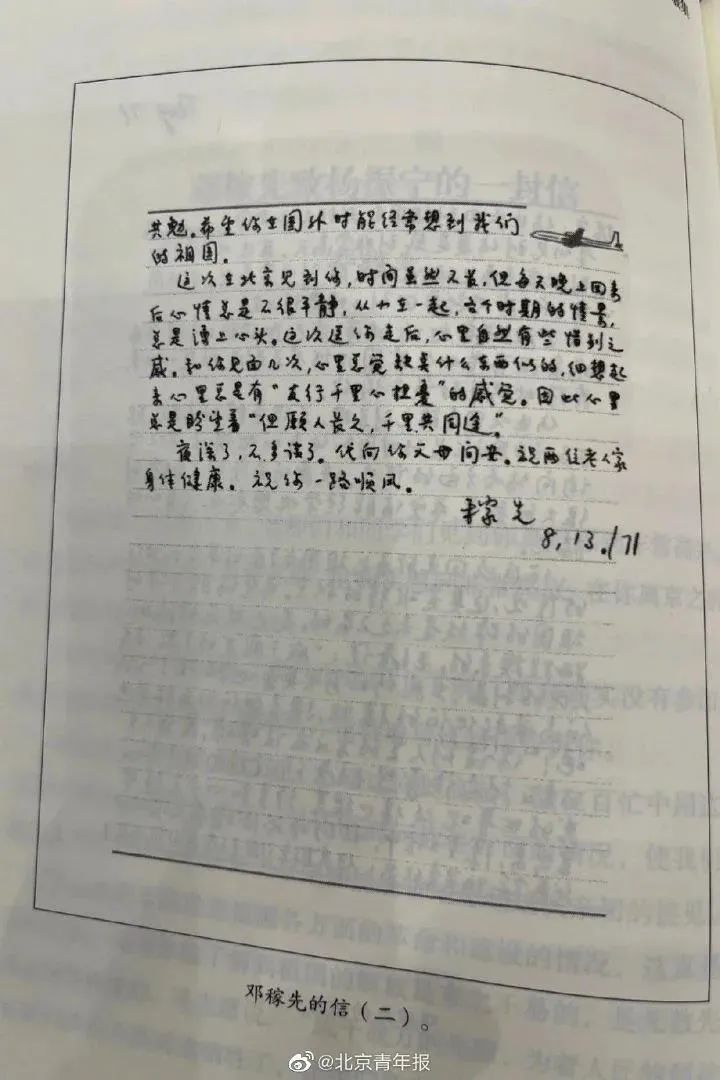 共勉。希望你在国外时能经常想到我们
的祖国。
这次在北京见到你,时间虽然不长,但每天晚上回来
后心情总是不很平静,从小在一起,各个时期的情景,
总是涌上心头。这次送你走后,心里自然有些惜别之
感。和你见面几次,心里总觉缺点什么东西似的,细想起
来心里总是有“友行千里心担忧”的感觉。因此心里
总是盼望着“但愿人长久,千里共同途”。
夜深了,不多谈了。代向你父母问安。祝两位老人家
身体健康。祝你一路顺风。
稼先
8,13./71
邓稼先的信(二)。
@北京青年报